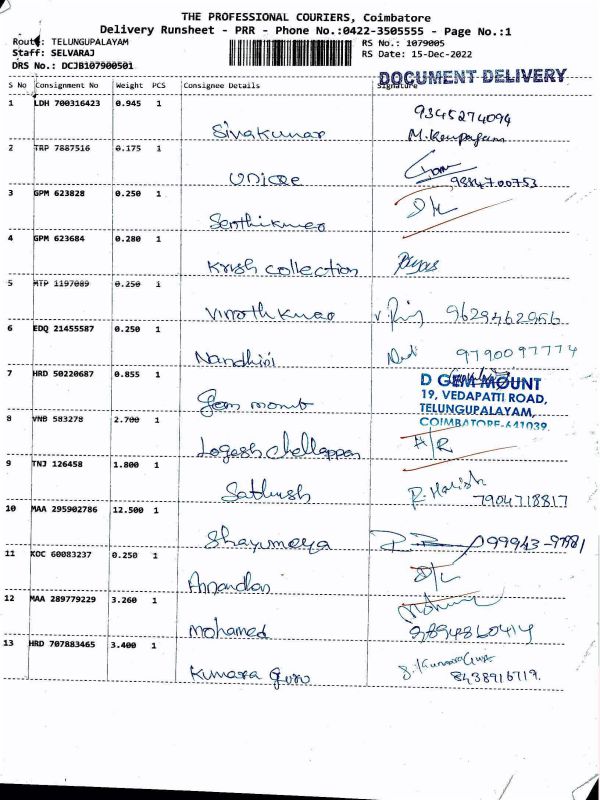 THE PROFESSIONAL COURIERS, Coimbatore
Delivery Runsheet - PRR - Phone No.:0422-3505555 - Page No.:1
Route: TELUNGUPALAYAM
RS No.: 1079005
Staff: SELVARAJ
RS Date: 15-Dec-2022
DRS No.: DCJB107900501
DOCUMENT DELIVERY
S No Consignment No Weight PCS Consignee Details Signature
1 LDH 700316423 0.945 1
9345274094
Sivakumar
2 TRP 7887516 0.175 1
9884700753
3 GPM 623828 0.250 1
D/L
4 GPM 623684 0.280 1
Krish collection
5 MTP 1197089 0.250 1
9629462966
6 EDQ 21455587 0.250 1
Nandhini 9790097774
7 HRD 50220687 0.855 1
D GEM MOUNT
19, VEDAPATTI ROAD,
TELUNGUPALAYAM,
COIMBATORE-641039.
Gem mount
8 VNB 583278 2.700 1
A/R
Logesh Chellappan
9 TNJ 126458 1.800 1
R. Harish
Sathish 7904718817
10 MAA 295902786 12.500 1
99943-97981
11 KOC 60083237 0.250 1
D/L
12 MAA 289779229 3.260 1
mohamed 9894860414
13 HRD 707883465 3.400 1
Kumara Guru 8438916719.